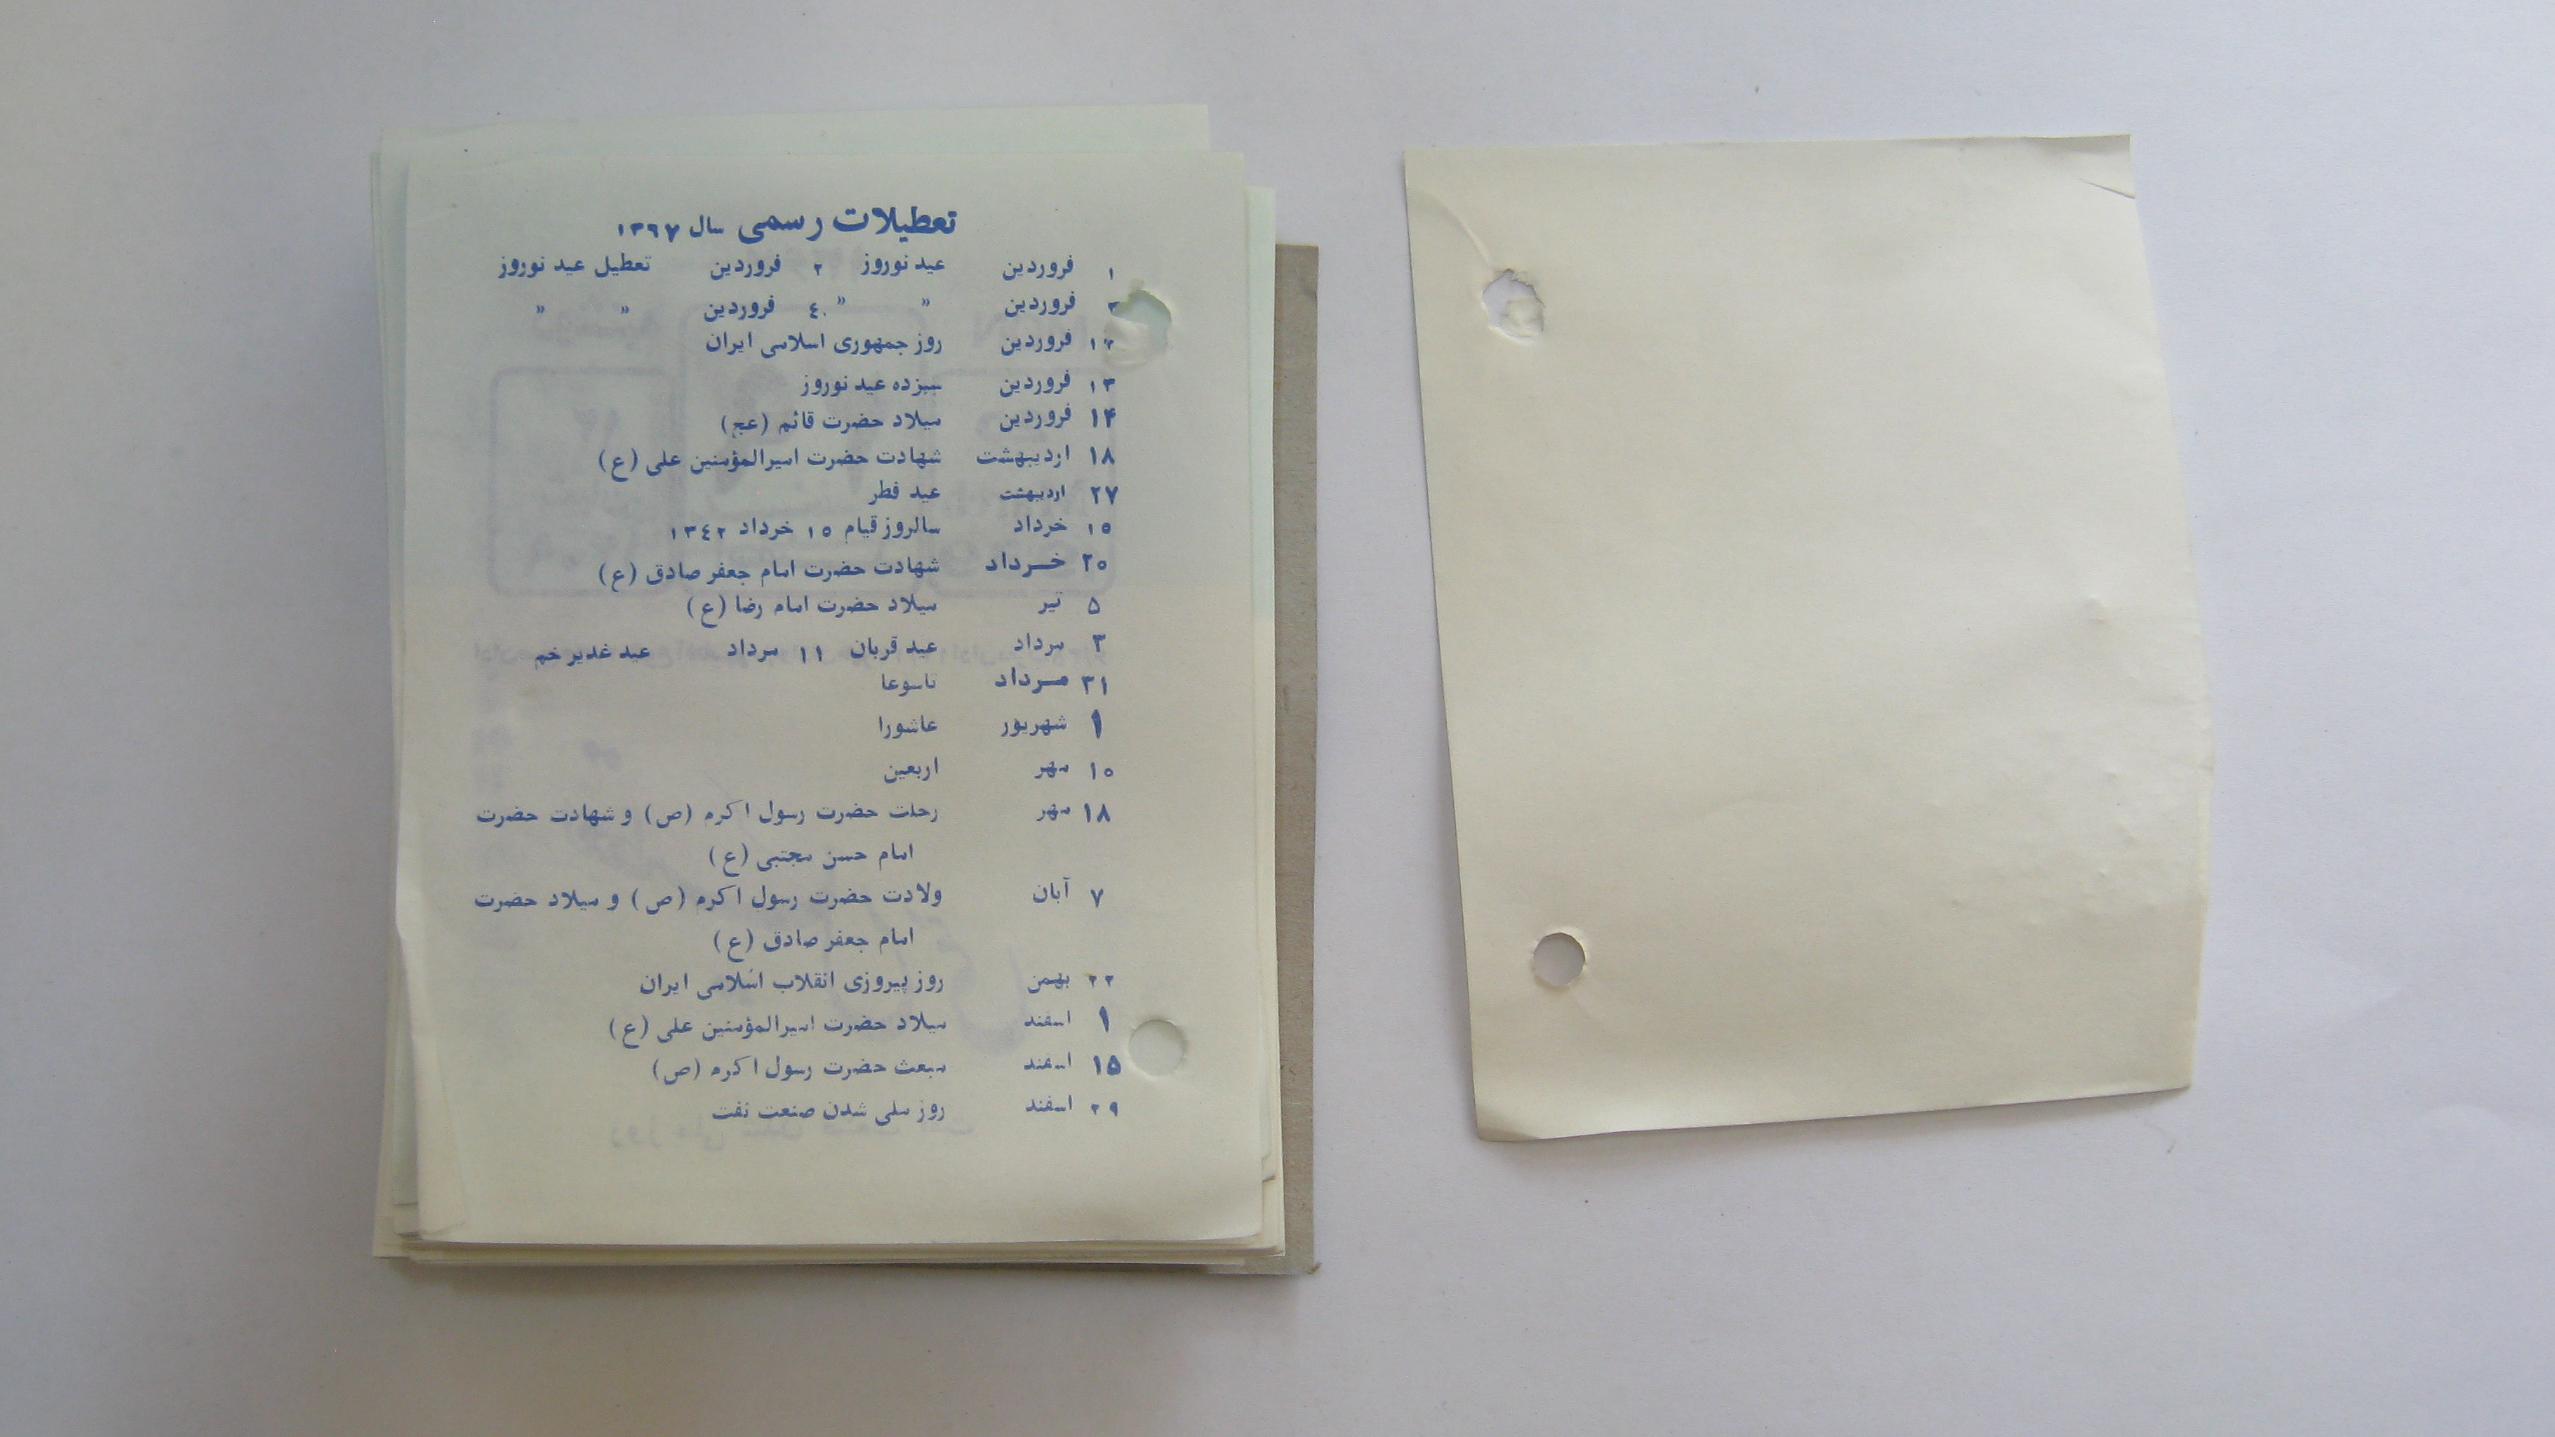 تعطیلات رسمی سال ۱۳۶۷
۱ فروردین عید نوروز ۲ فروردین تعطیل عید نوروز
۳ فروردین » » ٤ فروردین » »
۱۲ فروردین روز جمهوری اسلامی ایران
۱۳ فروردین سیزده عید نوروز
۱۴ فروردین میلاد حضرت قائم (عج)
۱۸ اردیبهشت شهادت حضرت امیرالمؤمنین علی (ع)
۲۷ اردیبهشت عید فطر
۱۵ خرداد سالروز قیام ۱۵ خرداد ۱۳٤۲
۲۰ خرداد شهادت حضرت امام جعفر صادق (ع)
۵ تیر میلاد حضرت امام رضا (ع)
۳ مرداد عید قربان ۱۱ مرداد عید غدیر خم
۳۱ مرداد تاسوعا
۱ شهریور عاشورا
۱۰ مهر اربعین
۱۸ مهر رحلت حضرت رسول اکرم (ص) و شهادت حضرت
امام حسن مجتبی (ع)
۷ آبان ولادت حضرت رسول اکرم (ص) و میلاد حضرت
امام جعفر صادق (ع)
۲۲ بهمن روز پیروزی انقلاب اسلامی ایران
۱ اسفند میلاد حضرت امیرالمؤمنین علی (ع)
۱۵ اسفند مبعث حضرت رسول اکرم (ص)
۲۹ اسفند روز ملی شدن صنعت نفت